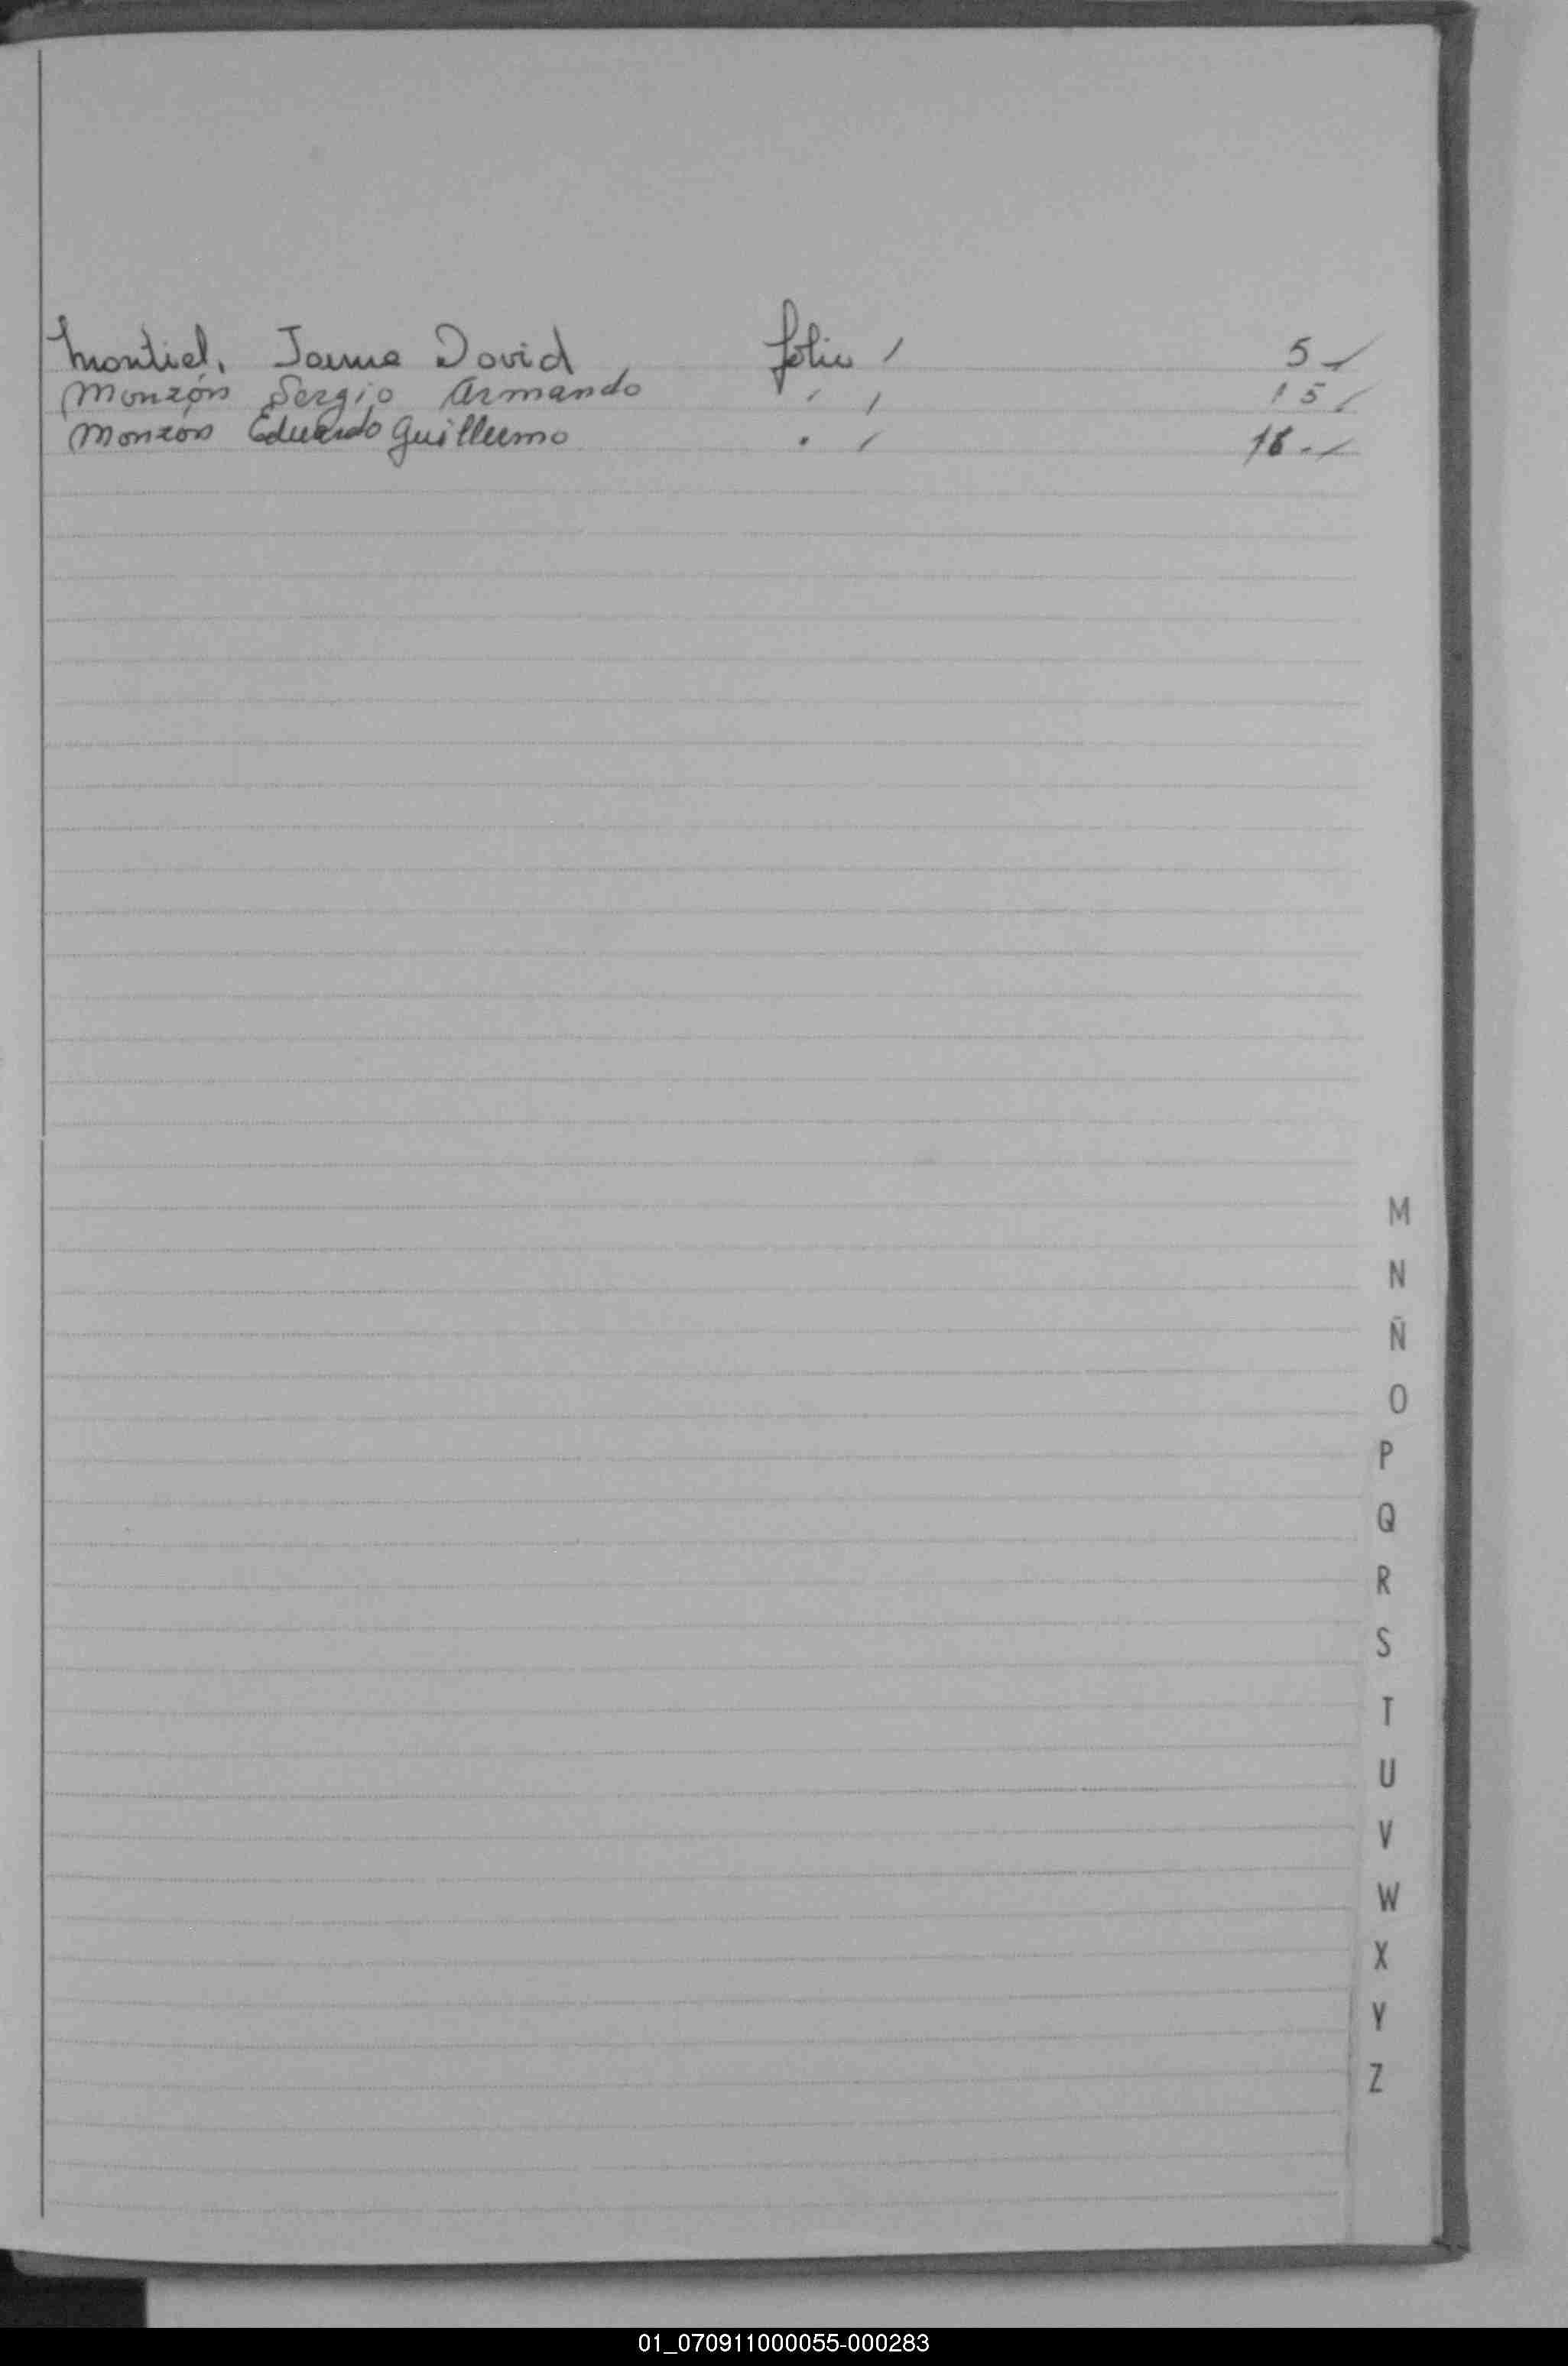 Montiel, Jaime David folio / 5 ✓
Monzón Sergio Armando " / 15 /
Monzón Eduardo Guillermo " / 18.-/
M
N
Ñ
O
P
Q
R
S
T
U
V
W
X
Y
Z
01_070911000055-000283